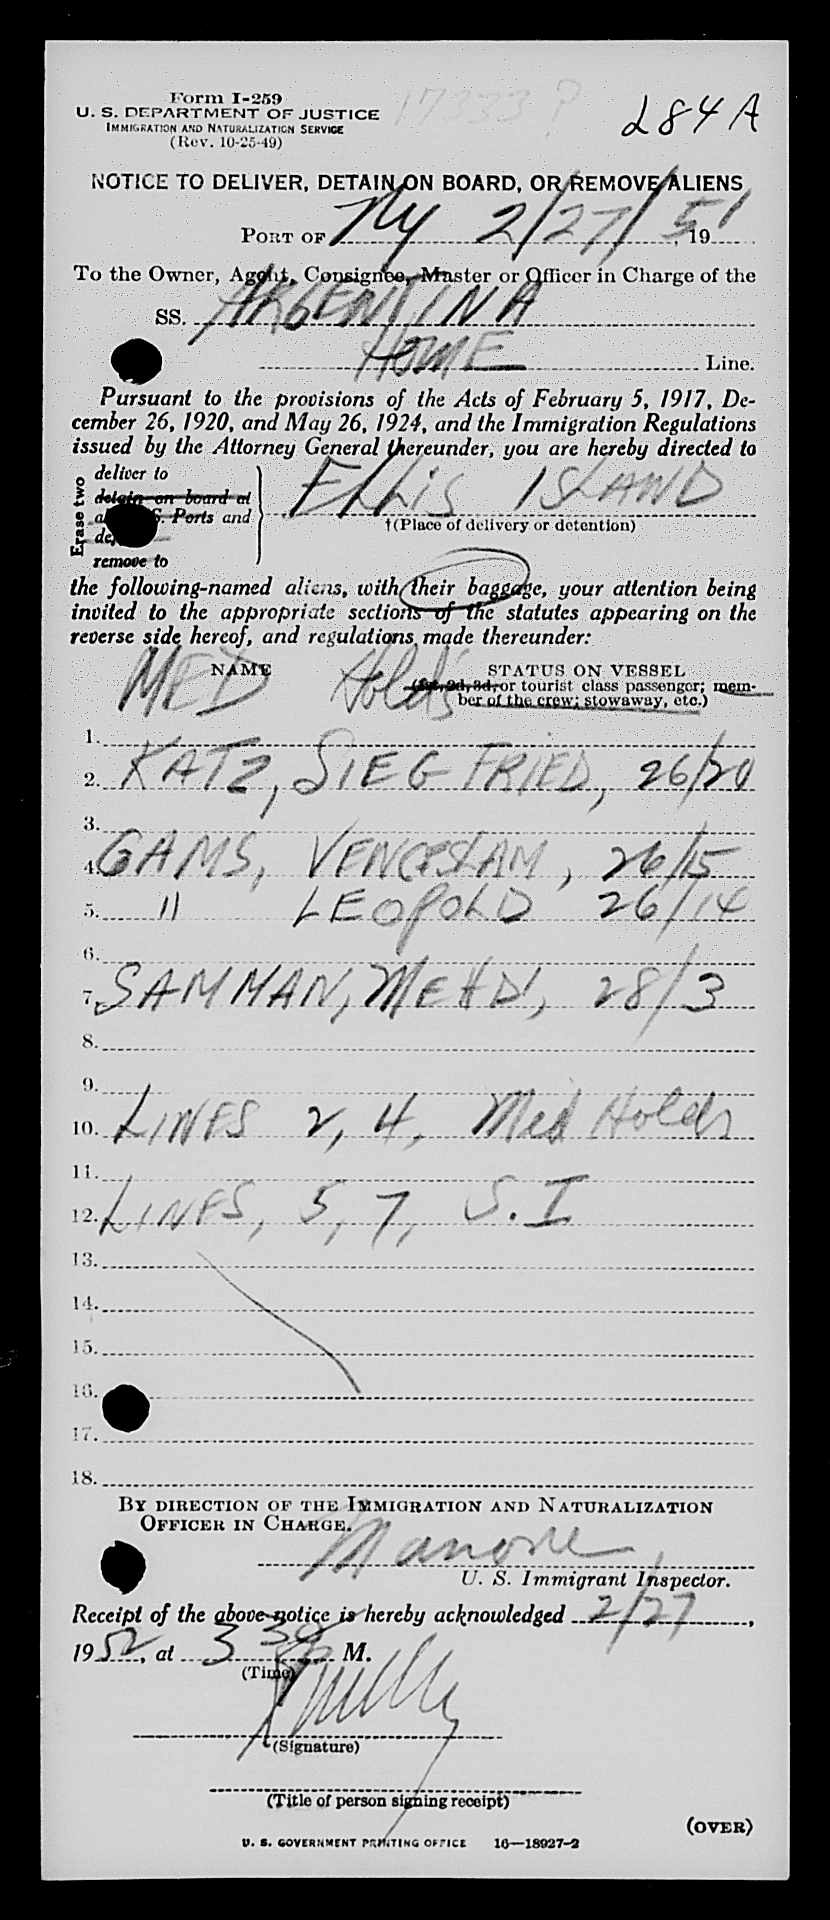 17333 ?
284A
Form I-259
U. S. DEPARTMENT OF JUSTICE
IMMIGRATION AND NATURALIZATION SERVICE
(Rev. 10-25-49)
NOTICE TO DELIVER, DETAIN ON BOARD, OR REMOVE ALIENS
PORT OF NY 2/27/51, 19
To the Owner, Agent, Consignee, Master or Officer in Charge of the
SS. ARGENTINA
HOME Line.
Pursuant to the provisions of the Acts of February 5, 1917, De-
cember 26, 1920, and May 26, 1924, and the Immigration Regulations
issued by the Attorney General thereunder, you are hereby directed to
Erase two
deliver to
detain on board at
S. Ports and
remove to
ELLIS ISLAND
†(Place of delivery or detention)
the following-named aliens, with their baggage, your attention being
invited to the appropriate sections of the statutes appearing on the
reverse side hereof, and regulations made thereunder:
NAME STATUS ON VESSEL
MED Holds (1st, 2d, 3d, or tourist class passenger; mem-
ber of the crew; stowaway, etc.)
1.
2. KATZ, SIEGFRIED, 26/20
3.
4. GAMS, VENCESLAM, 26/15
5. " LEOPOLD 26/14
6.
7. SAMMAN, MEHDI, 28/3
8.
9.
10. LINES 2, 4, Med Holds
11.
12. LINES, 5, 7, S.I
13.
14.
15.
16.
17.
18.
BY DIRECTION OF THE IMMIGRATION AND NATURALIZATION
OFFICER IN CHARGE.
U. S. Immigrant Inspector.
Receipt of the above notice is hereby acknowledged 2/27,
1952, at 3 30 M.
(Time)
(Signature)
(Title of person signing receipt)
(OVER)
U. S. GOVERNMENT PRINTING OFFICE 16—18927-2